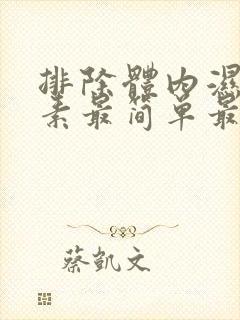 排除體内濕
素最简单最
蔡凱文